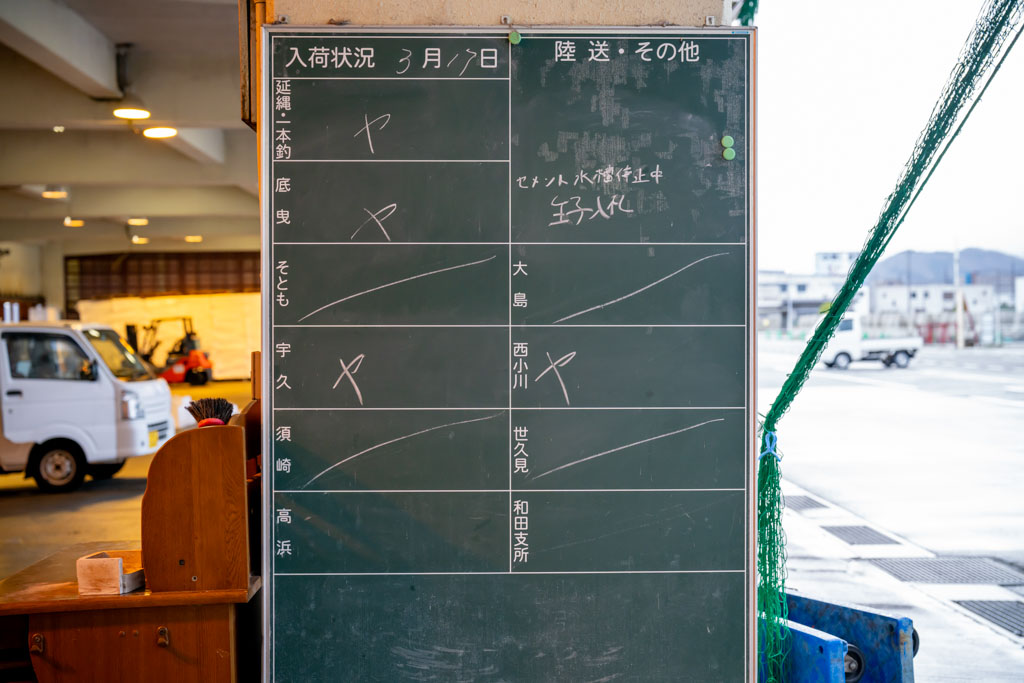 入荷状況 3月17日
延縄・一本釣 や
底曳 や
そとも
宇久 や
須崎
高浜
陸送・その他
セメント水槽停止中
大島
西小川 や
世久見
和田支所